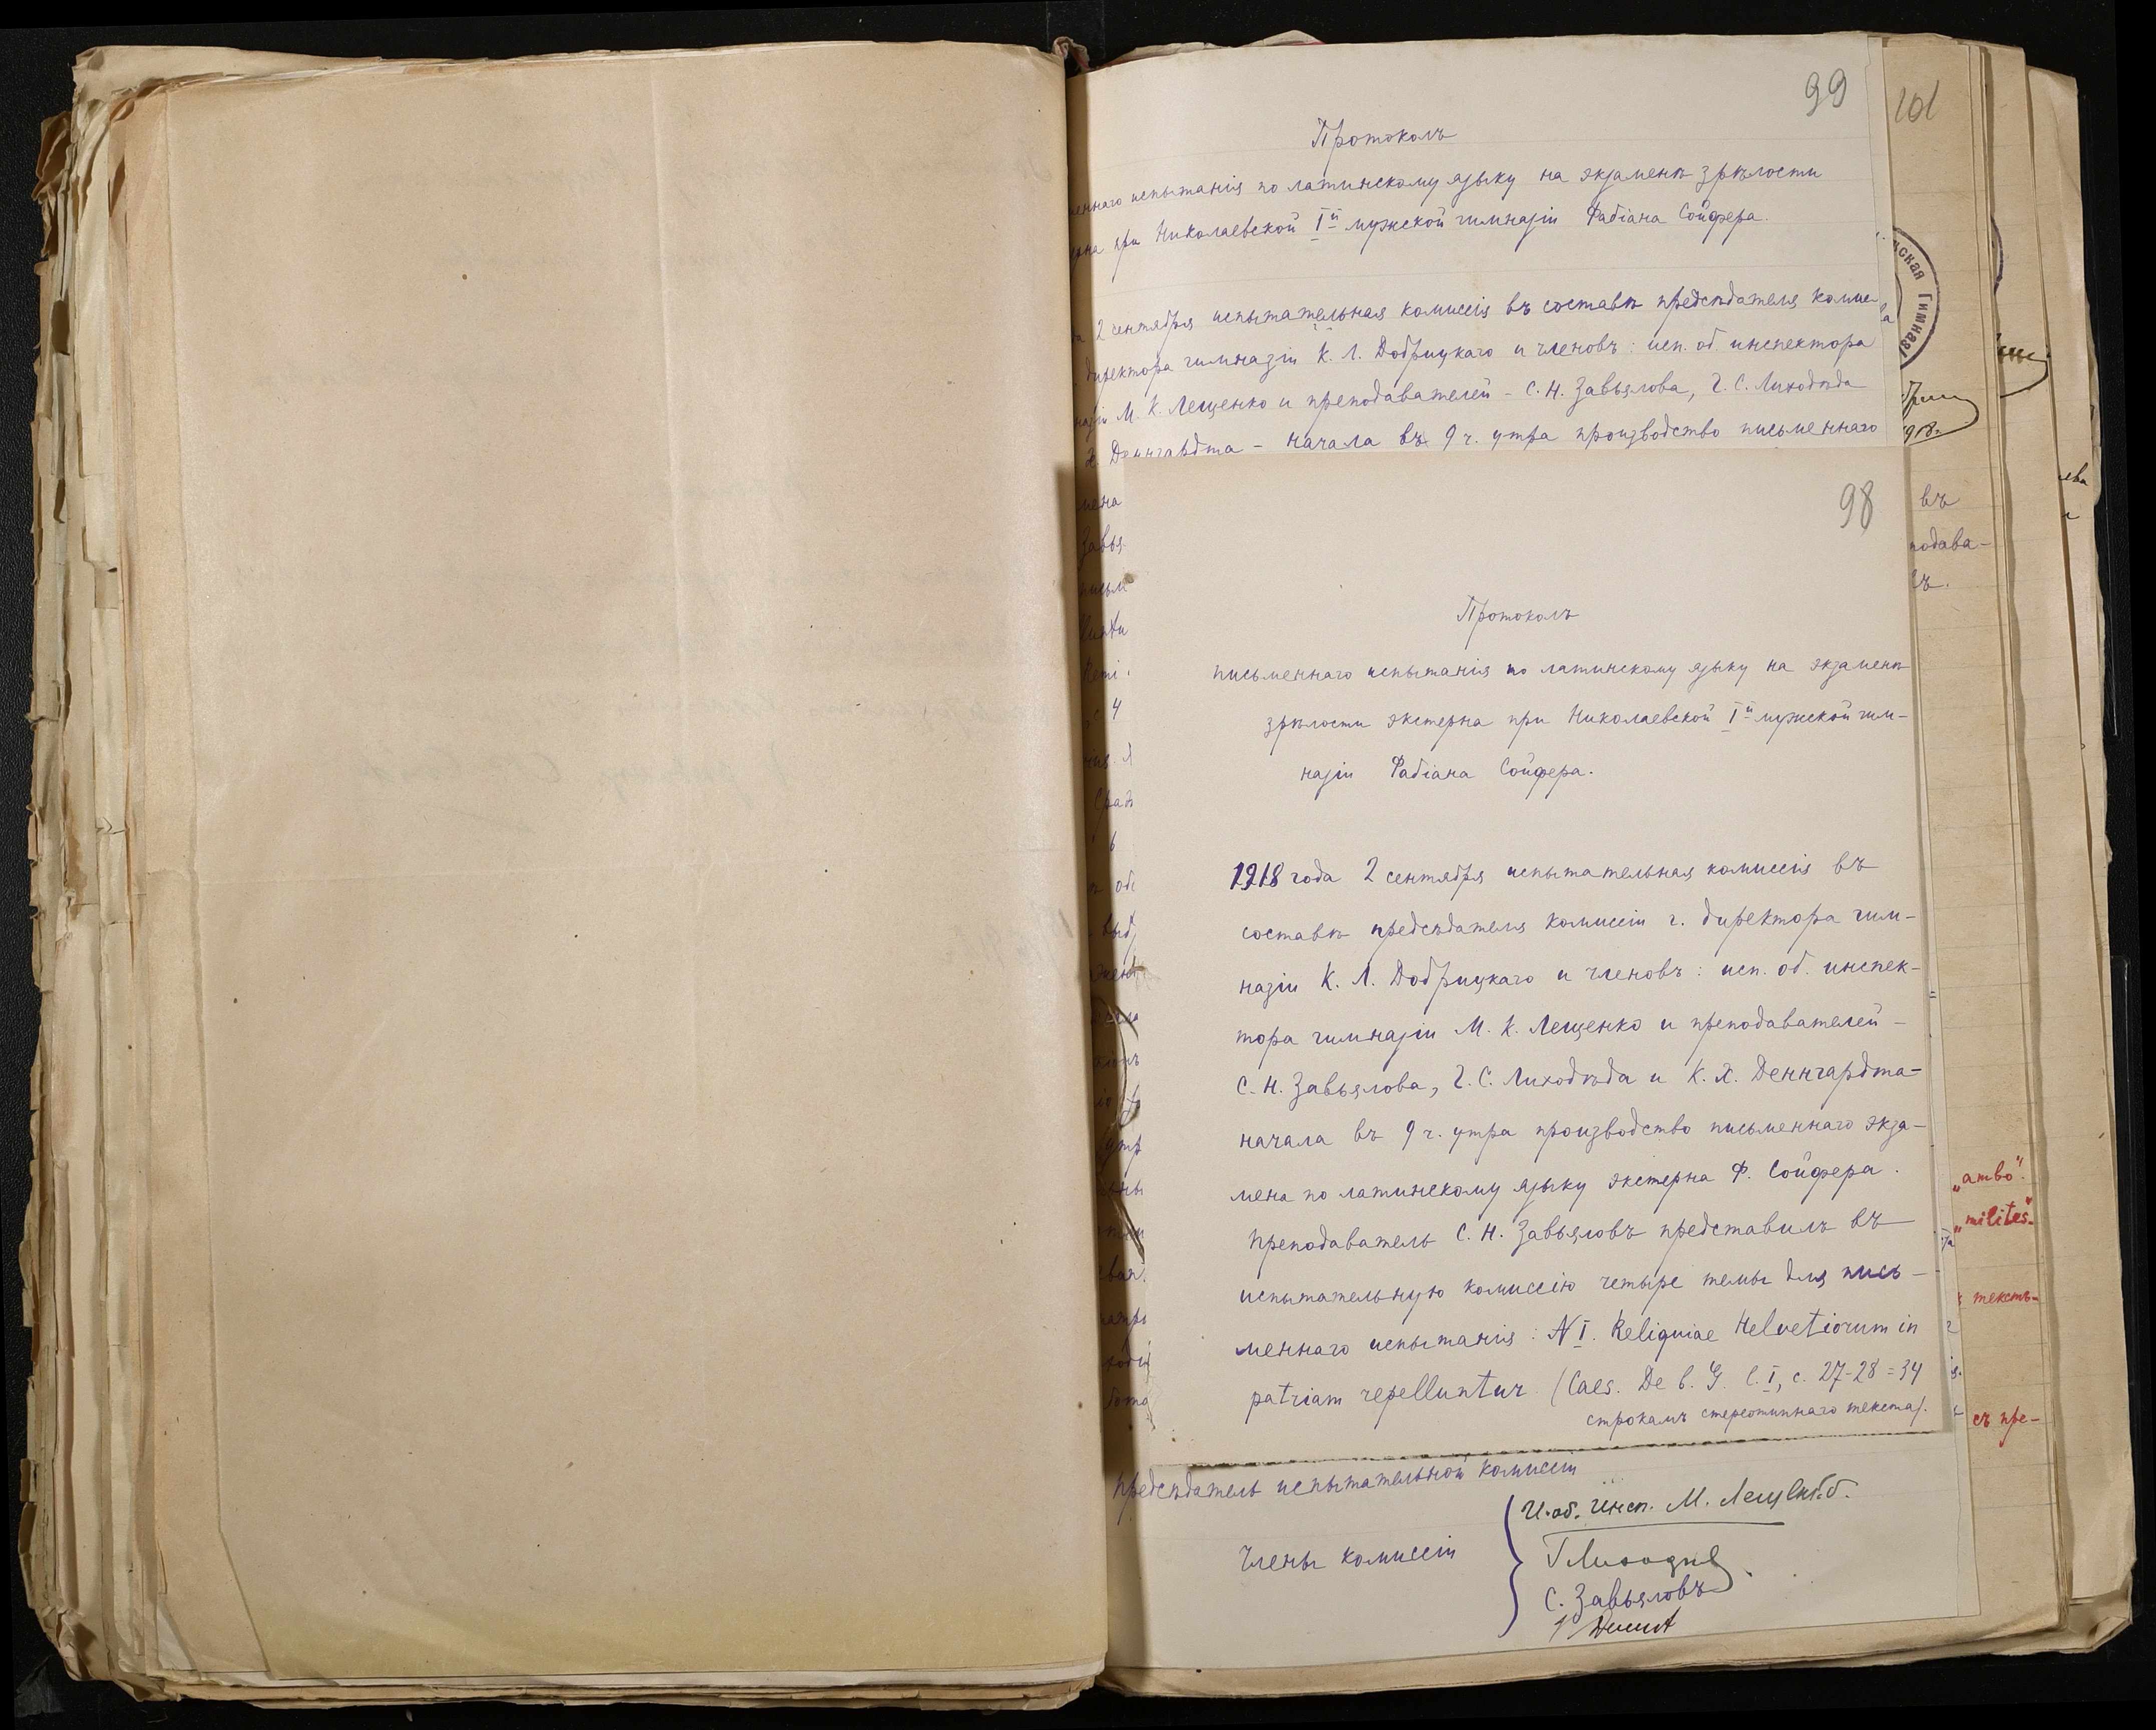 99
Протоколъ
испытанія по латинскому языку на экзаменѣ зрѣлости
при Николаевской Iй мужской гимназіи Фабіана Сойфера.
2 сентября испытательная комиссія въ составѣ предсѣдателя комис-
директора гимназіи К. Л. Добрицкаго и членовъ: исп. об. инспектора
М. К. Лещенко и преподавателей - С. Н. Завьялова, Г. С. Лиходѣда
Деннгардта - начала въ 9 ч. утра производство письменнаго
98
Протоколъ
письменнаго испытанія по латинскому языку на экзаменѣ
зрѣлости экстерна при Николаевской Iй мужской гим-
назіи Фабіана Сойфера.
1918 года 2 сентября испытательная комиссія въ
составѣ предсѣдателя комиссіи г. директора гим-
назіи К. Л. Добрицкаго и членовъ: исп. об. инспек-
тора гимназіи М. К. Лещенко и преподавателей -
С. Н. Завьялова, Г. С. Лиходѣда и К. Х. Деннгардта -
начала въ 9 ч. утра производство письменнаго экза-
мена по латинскому языку экстерна Ф. Сойфера.
Преподаватель С. Н. Завьяловъ представилъ въ
испытательную комиссію четыре темы для пись-
меннаго испытанія: N I. Reliquiae Helvetiorum in
patriam repelluntur (Caes. De b. G. l. I, c. 27-28 = 34
строкамъ стереотипнаго текста).
Предсѣдатель испытательной комиссіи
Члены комиссіи
И. об. Инсп. М. Лещенко
Г Лиходѣд
С. Завьяловъ
101
ская Гимназі
въ
подава-
„ambo".
„milites"
текстъ-
съ пре-